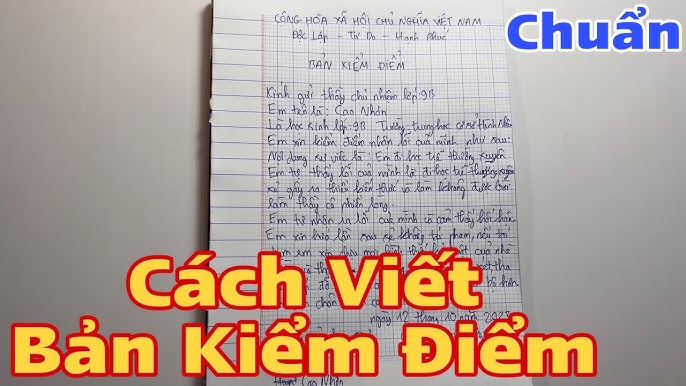 Chuẩn
CỘNG HÒA XÃ HỘI CHỦ NGHĨA VIỆT NAM
Độc Lập - Tự Do - Hạnh Phúc
BẢN KIỂM ĐIỂM
Kính gửi thầy chủ nhiệm lớp: 9B
Em tên là: Cao Nhân
Là học sinh lớp: 9B Trường trung học cơ sở Thành Nhân
Em xin kiểm điểm nhân lỗi của mình như sau:
Nội dung sự việc là: Em đi học trễ thường xuyên
Em tự thấy lỗi của mình là đi học trễ thường xuyên
sẽ gây ra thiếu kiến thức và làm không được bài
làm thầy cô phiền lòng.
Em tự nhận ra lỗi của mình và cảm thấy hối hận.
Em xin hứa lần sau sẽ không tái phạm, nếu tái
Cách Viết
Bản Kiểm Điểm
ngày 12 tháng 10 năm
Cao Nhân